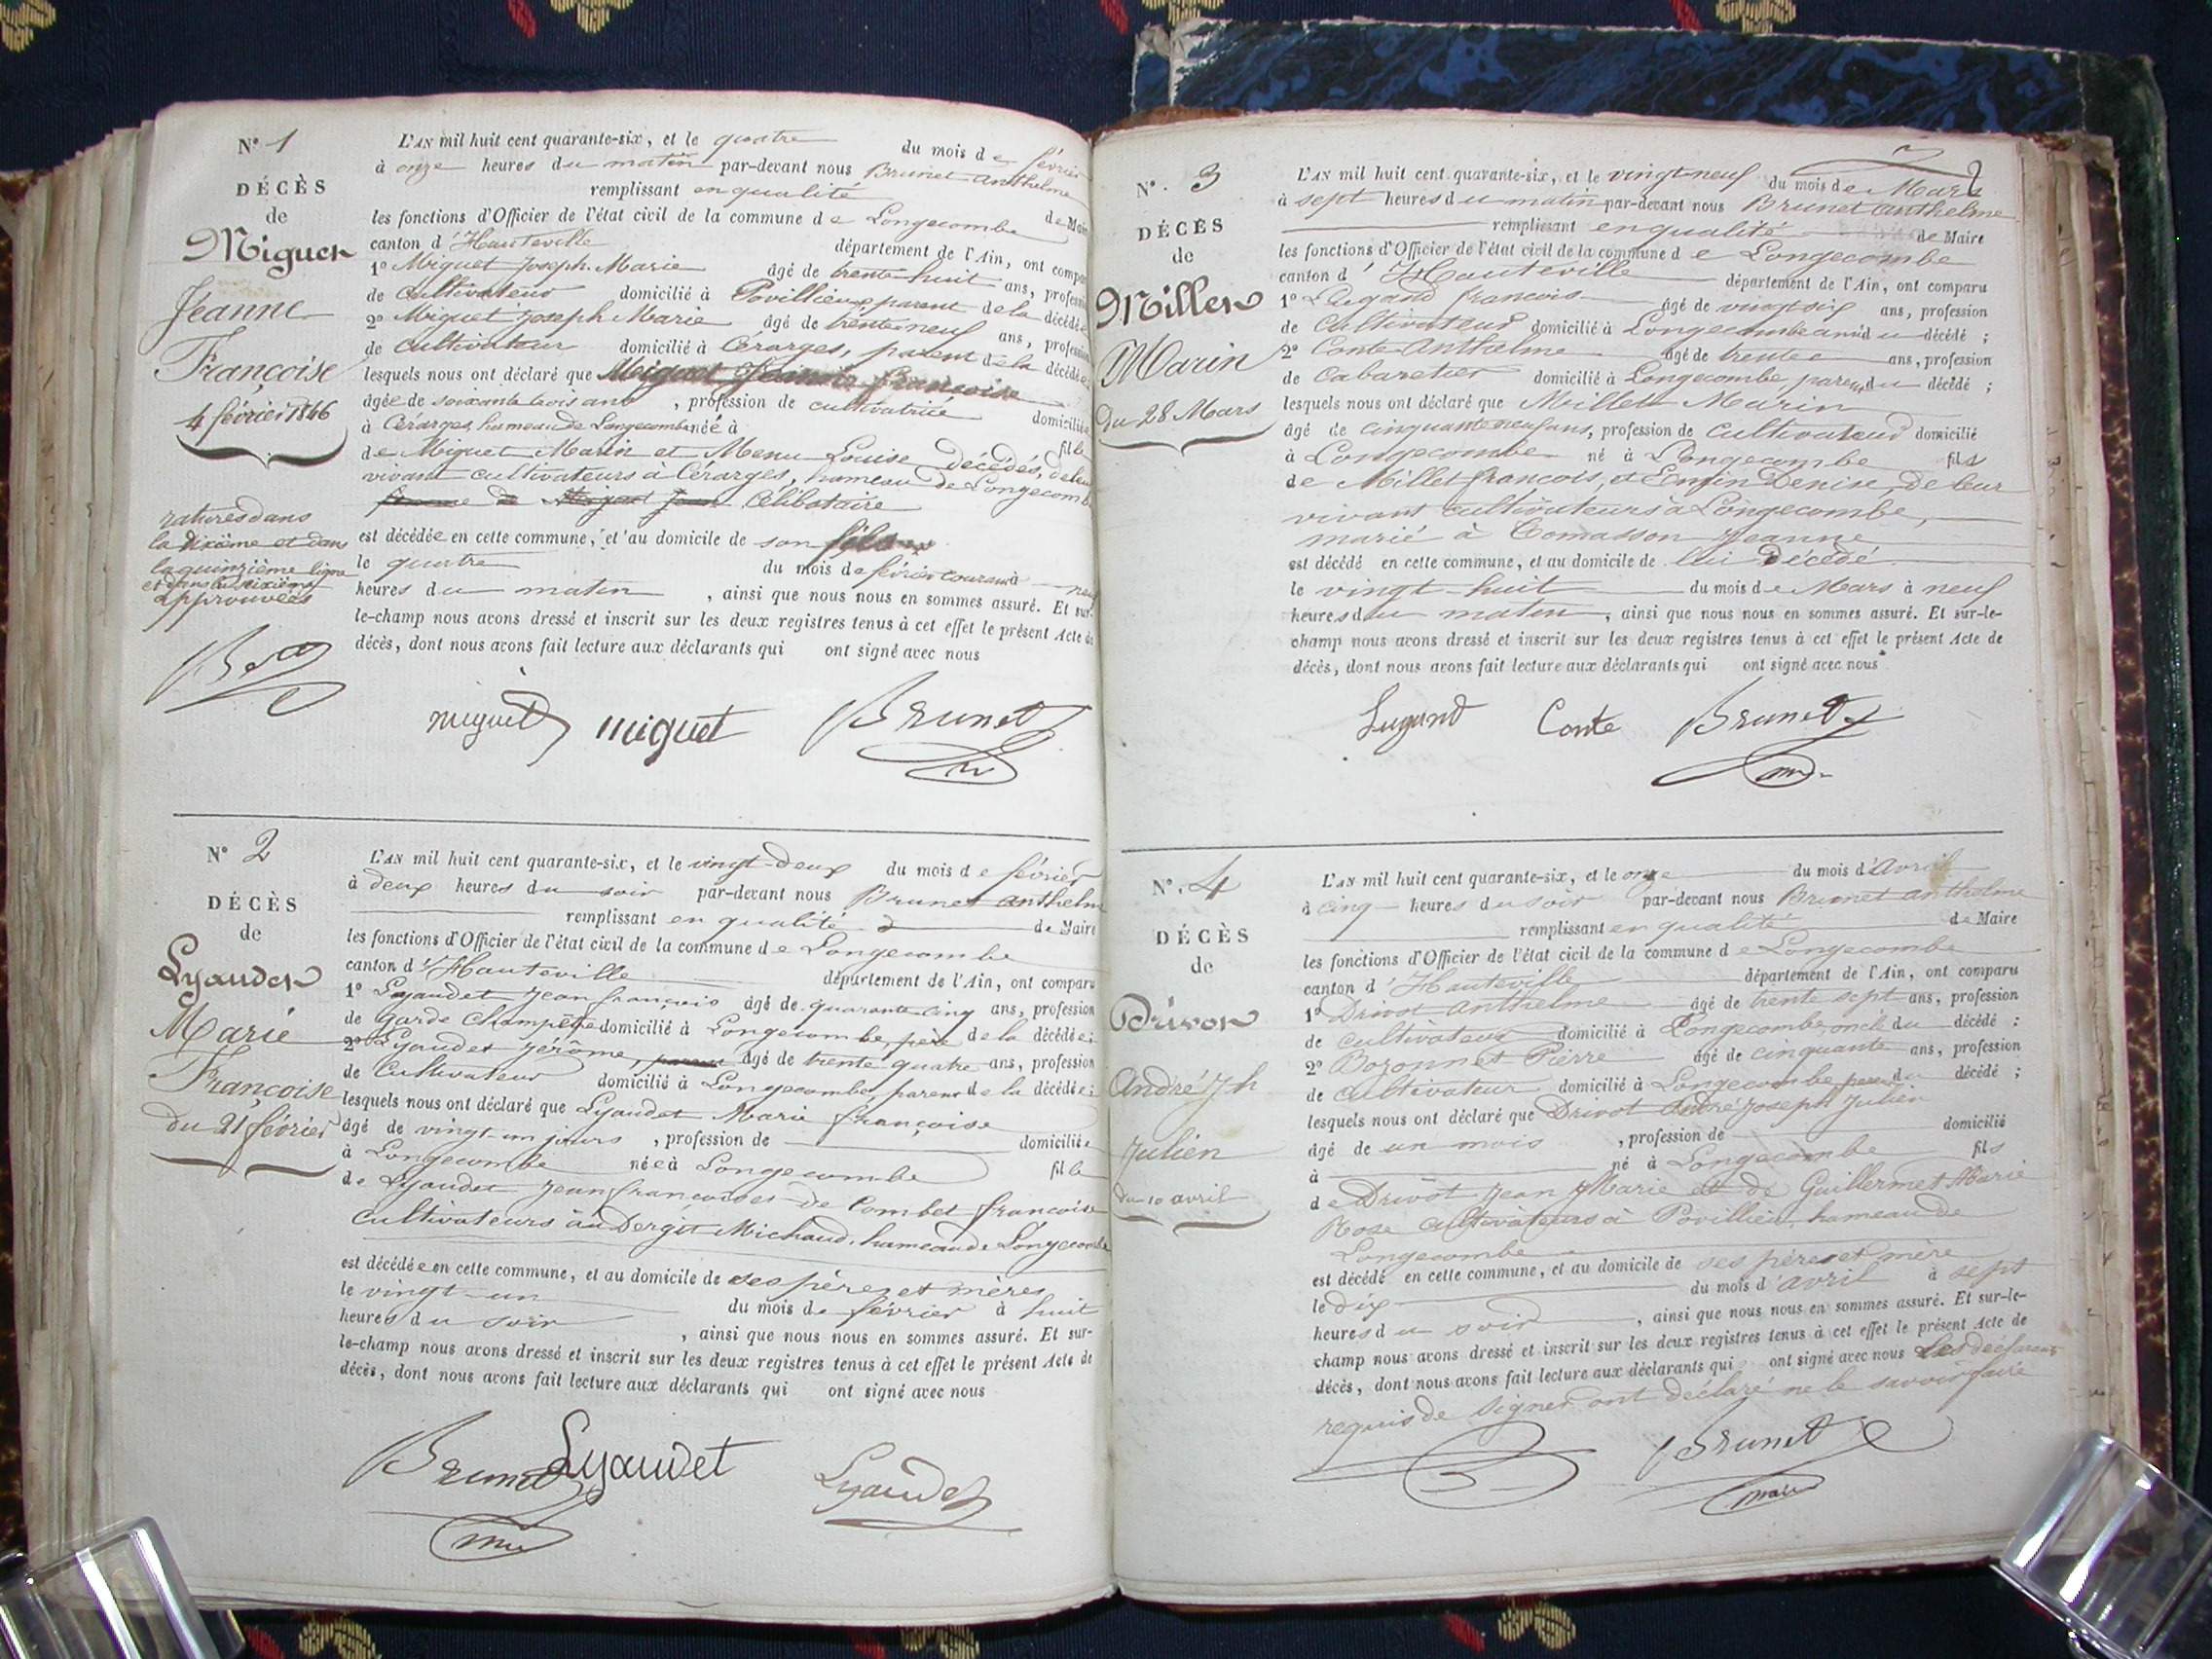 N° 1
DÉCÈS
de
Miguet
Jeanne
Françoise
4 février 1846
ratures dans
la dixième et dans
la quinzième ligne
et dans la seizième
approuvées
L'AN mil huit cent quarante-six, et le quatre du mois de février
à onze heures du matin par-devant nous Brunet Anthelme
remplissant en qualité de Maire
les fonctions d'Officier de l'état civil de la commune de Longecombe
canton d'Hauteville département de l'Ain, ont compa
1° Miguet Joseph-Marie âgé de trente-huit ans, profession
de cultivateur domicilié à Povillieu, parent de la décédée
2° Miguet Joseph Marie âgé de trente neuf ans, profession
de cultivateur domicilié à Cérarges, parent de la décédée
lesquels nous ont déclaré que Miguet Jeanne françoise
âgée de soixante trois ans, profession de cultivatrice domiciliée
à Cérarges, hameau de Longecombe née à fille
de Miguet Marin et Menu Louise décédés, de leur
vivant cultivateurs à Cérarges, hameau de Longecombe
femme de Miguet Jean Célibataire
est décédée en cette commune, et au domicile de son
le quatre du mois de février courant à neuf
heures du matin, ainsi que nous nous en sommes assuré. Et sur-
le-champ nous avons dressé et inscrit sur les deux registres tenus à cet effet le présent Acte de
décès, dont nous avons fait lecture aux déclarants qui ont signé avec nous
miguet miguet Brunet
N° 2
DÉCÈS
de
Lyaudet
Marie
Françoise
du 21 février
L'AN mil huit cent quarante-six, et le vingt-deux du mois de février
à deux heures du soir par-devant nous Brunet Anthelme
remplissant en qualité de Maire
les fonctions d'Officier de l'état civil de la commune de Longecombe
canton d'Hauteville département de l'Ain, ont comparu
1° Lyaudet Jean françois âgé de quarante-cinq ans, profession
de Garde Champêtre domicilié à Longecombe, père de la décédée;
2° Lyaudet Jérôme, parent âgé de trente quatre ans, profession
de Cultivateur domicilié à Longecombe, parent de la décédée;
lesquels nous ont déclaré que Lyaudet Marie françoise
âgé de vingt-un jours, profession de domiciliée
à Longecombe née à Longecombe fille
de Lyaudet Jean françois et de Combet françoise
cultivateurs au Dergit Michaud, hameau de Longecombe
est décédée en cette commune, et au domicile de ses pères et mères
le vingt-un du mois de février à huit
heures du soir, ainsi que nous nous en sommes assuré. Et sur-
le-champ nous avons dressé et inscrit sur les deux registres tenus à cet effet le présent Acte de
décès, dont nous avons fait lecture aux déclarants qui ont signé avec nous
Brunet Lyaudet Lyaudet
N°. 3
DÉCÈS
de
Millet
Marin
Du 28 Mars
L'AN mil huit cent quarante-six, et le vingt neuf du mois de Mars
à sept heures du matin par-devant nous Brunet Anthelme
remplissant en qualité de Maire
les fonctions d'Officier de l'état civil de la commune de Longecombe
canton d'Hauteville département de l'Ain, ont comparu
1° Lugand françois âgé de vingt six ans, profession
de cultivateur domicilié à Longecombe ami du décédé;
2° Conte Anthelme âgé de trente ans, profession
de Cabaretier domicilié à Longecombe, parent du décédé;
lesquels nous ont déclaré que Millet Marin
âgé de cinquante neuf ans, profession de Cultivateur domicilié
à Longecombe né à Longecombe fils
de Millet françois, et Emin Denise, de leur
vivant cultivateurs à Longecombe,
marié à Comasson Jeanne
est décédé en cette commune, et au domicile de lui Décédé
le vingt-huit du mois de Mars à neuf
heures du matin, ainsi que nous nous en sommes assuré. Et sur-le-
champ nous avons dressé et inscrit sur les deux registres tenus à cet effet le présent Acte de
décès, dont nous avons fait lecture aux déclarants qui ont signé avec nous
Lugand Conte Brunet
N°. 4
DÉCÈS
de
Drivot
André Jh
Julien
du 10 avril
L'AN mil huit cent quarante-six, et le onze du mois d'Avril
à cinq heures du soir par-devant nous Brunet Anthelme
remplissant en qualité de Maire
les fonctions d'Officier de l'état civil de la commune de Longecombe
canton d'Hauteville département de l'Ain, ont comparu
1° Drivot Anthelme âgé de trente sept ans, profession
de cultivateur domicilié à Longecombe, oncle du décédé;
2° Bozonnet Pierre âgé de cinquante ans, profession
de cultivateur domicilié à Longecombe du décédé;
lesquels nous ont déclaré que Drivot André Joseph Julien
âgé de un mois, profession de domicilié
à né à Longecombe fils
de Drivot Jean Marie et de Guillermet Marie
Rose cultivateurs à Povillieu, hameau de
Longecombe
est décédé en cette commune, et au domicile de ses père et mère
le dix du mois d'avril à sept
heures du soir, ainsi que nous nous en sommes assuré. Et sur-le-
champ nous avons dressé et inscrit sur les deux registres tenus à cet effet le présent Acte de
décès, dont nous avons fait lecture aux déclarants qui ont signé avec nous Les déclarants
requis de signer ont déclaré ne le savoir faire
Brunet
maire